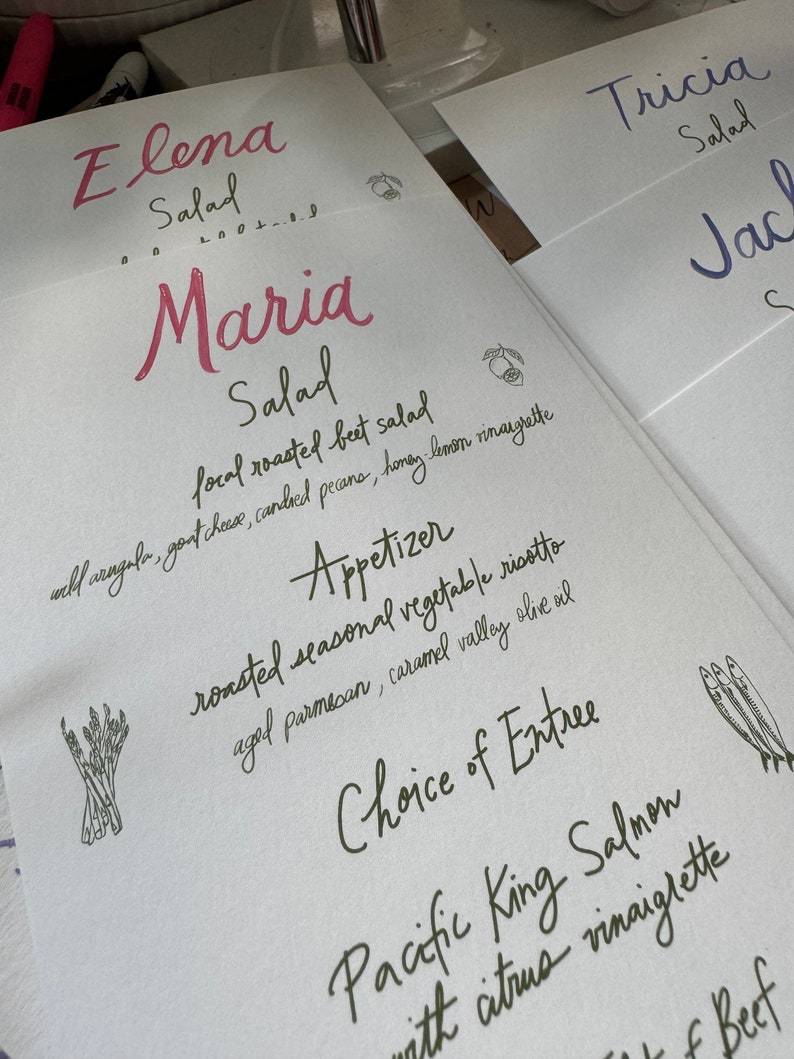 Elena
Salad
Tricia
Salad
Maria
Salad
local roasted beet salad
wild arugula, goat cheese, candied pecans, honey-lemon vinaigrette
Appetizer
roasted seasonal vegetable risotto
aged parmesan, caramel valley olive oil
Choice of Entree
Pacific King Salmon
with citrus vinaigrette
of Beef